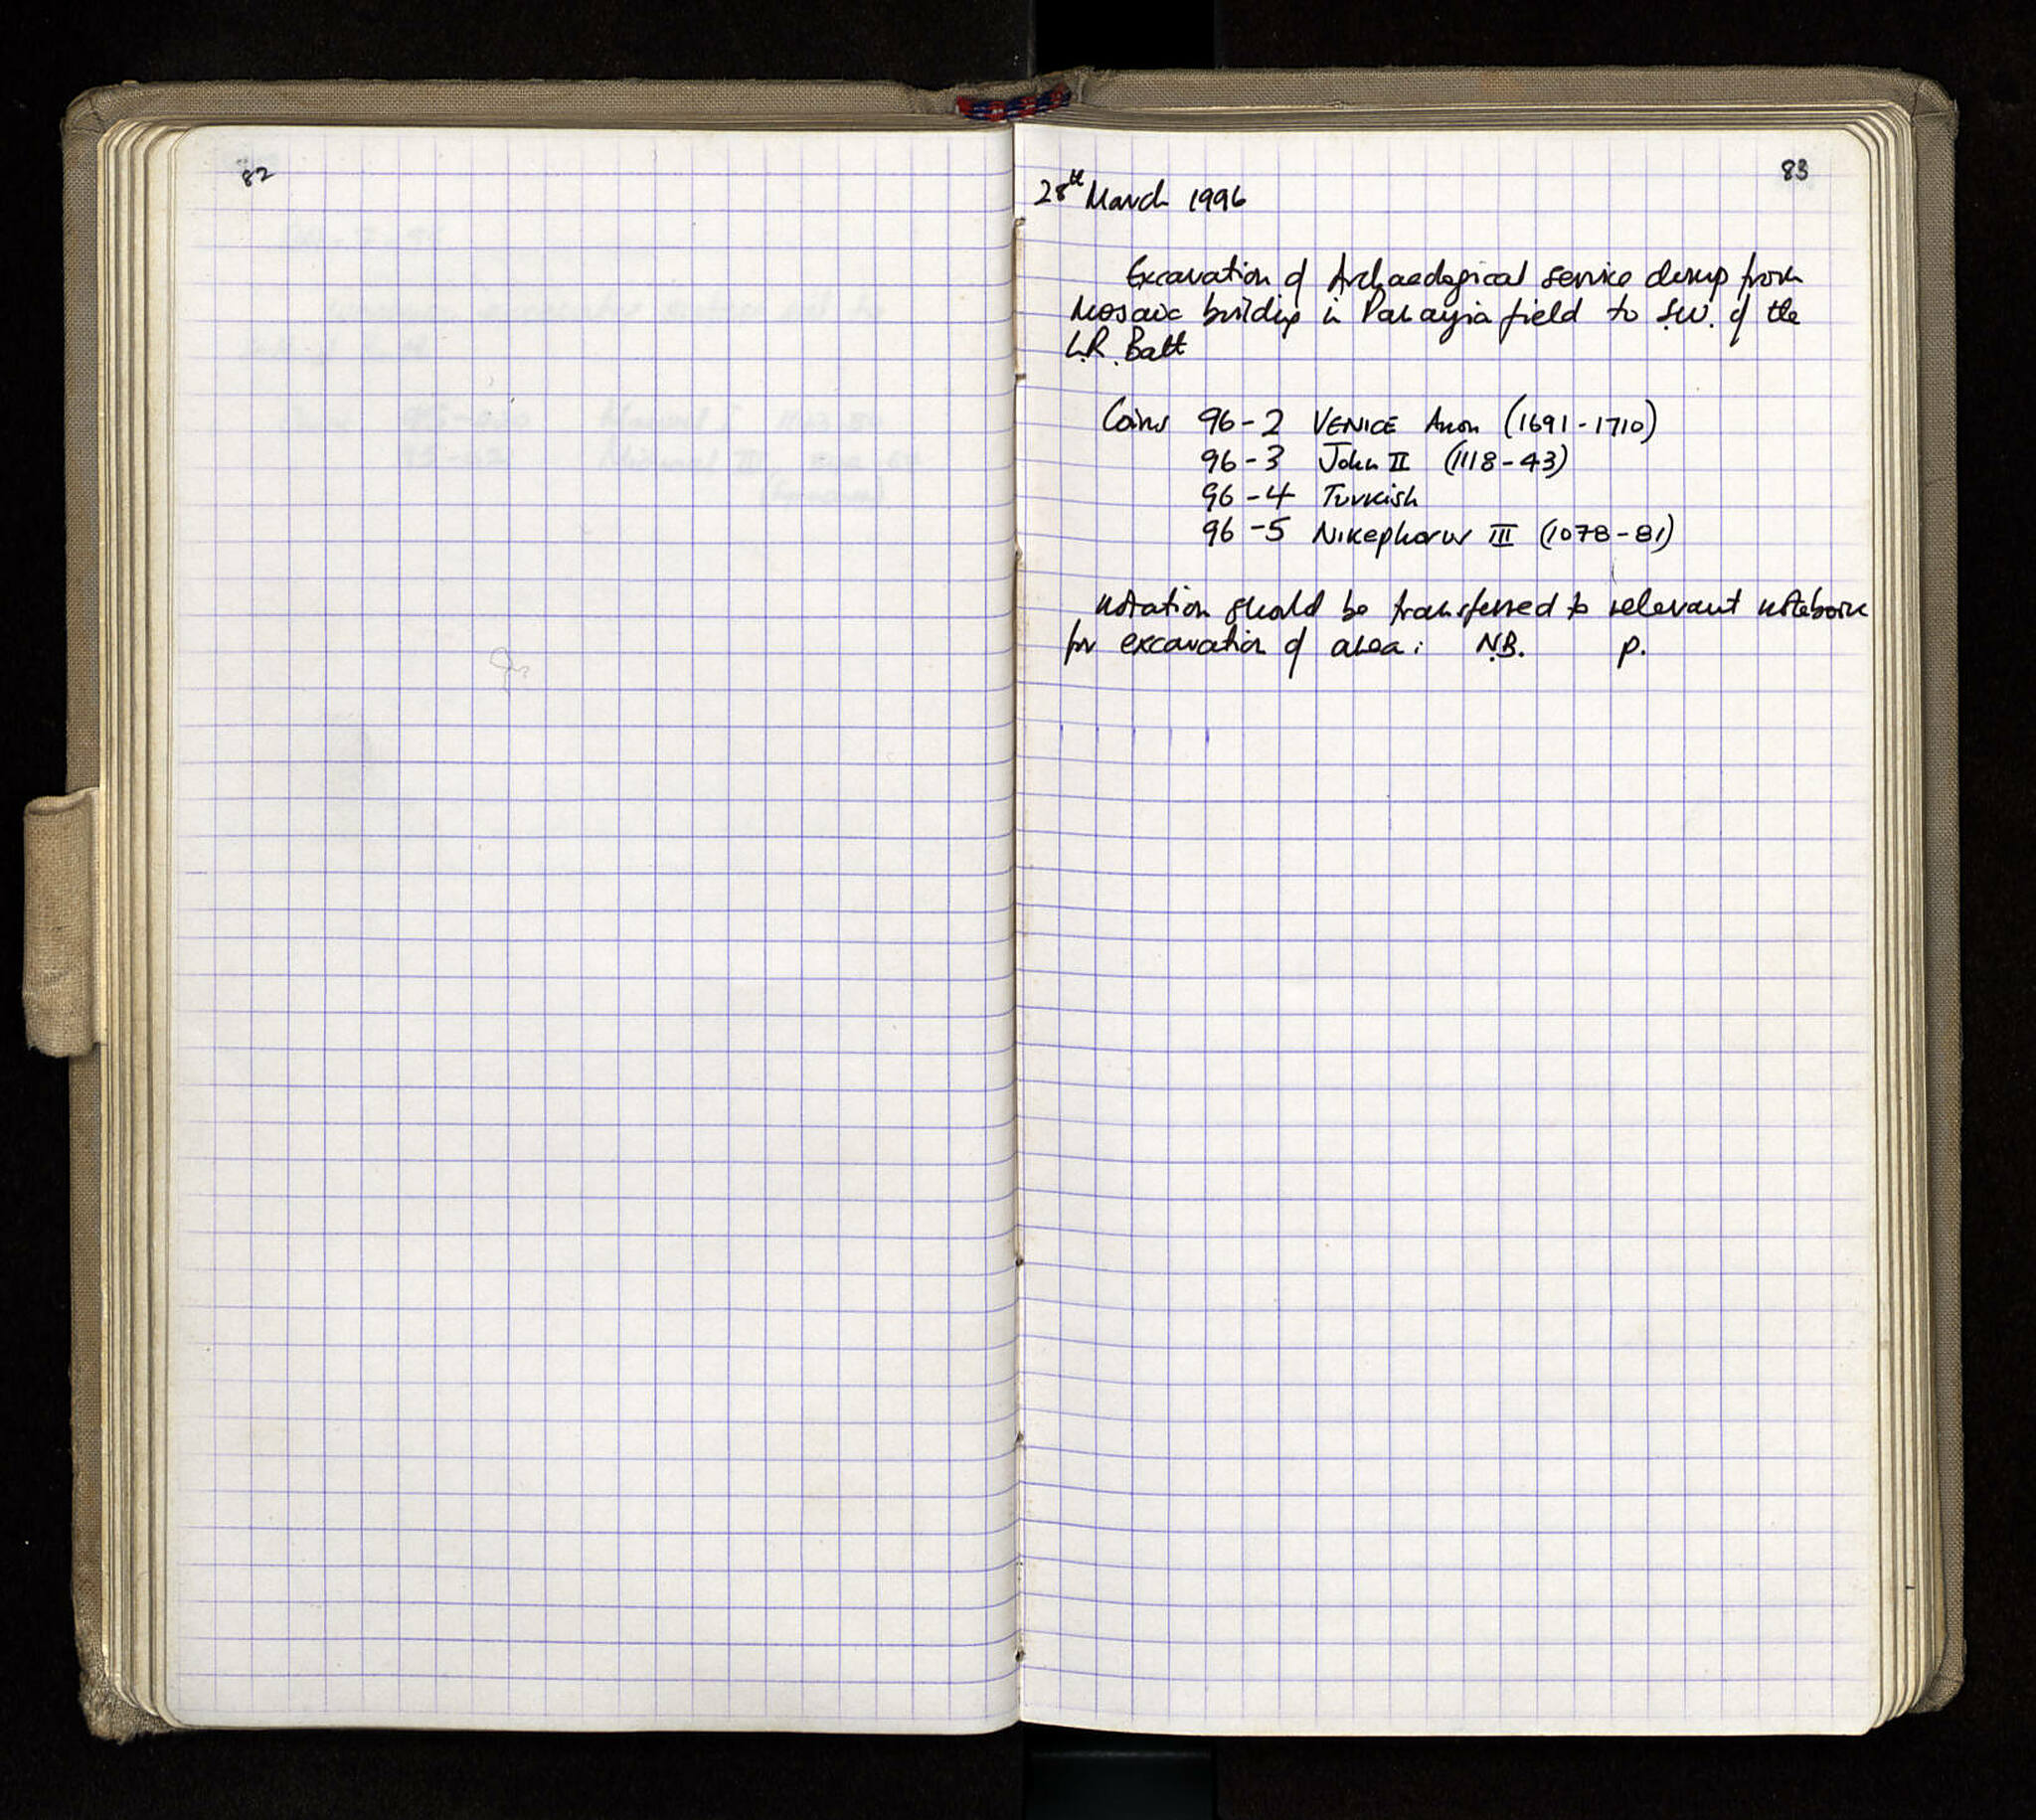 82
83
28th March 1996
Excavation of Archaeological service dump from
Mosaic building in Panayia field to S.W. of the
L.R. Batt
Coins 96-2 VENICE Anon (1691-1710)
96-3 John II (1118-43)
96-4 Turkish
96-5 Nikephorus III (1078-81)
notation should be transferred to relevant notebook
for excavation of area: N.B. p.